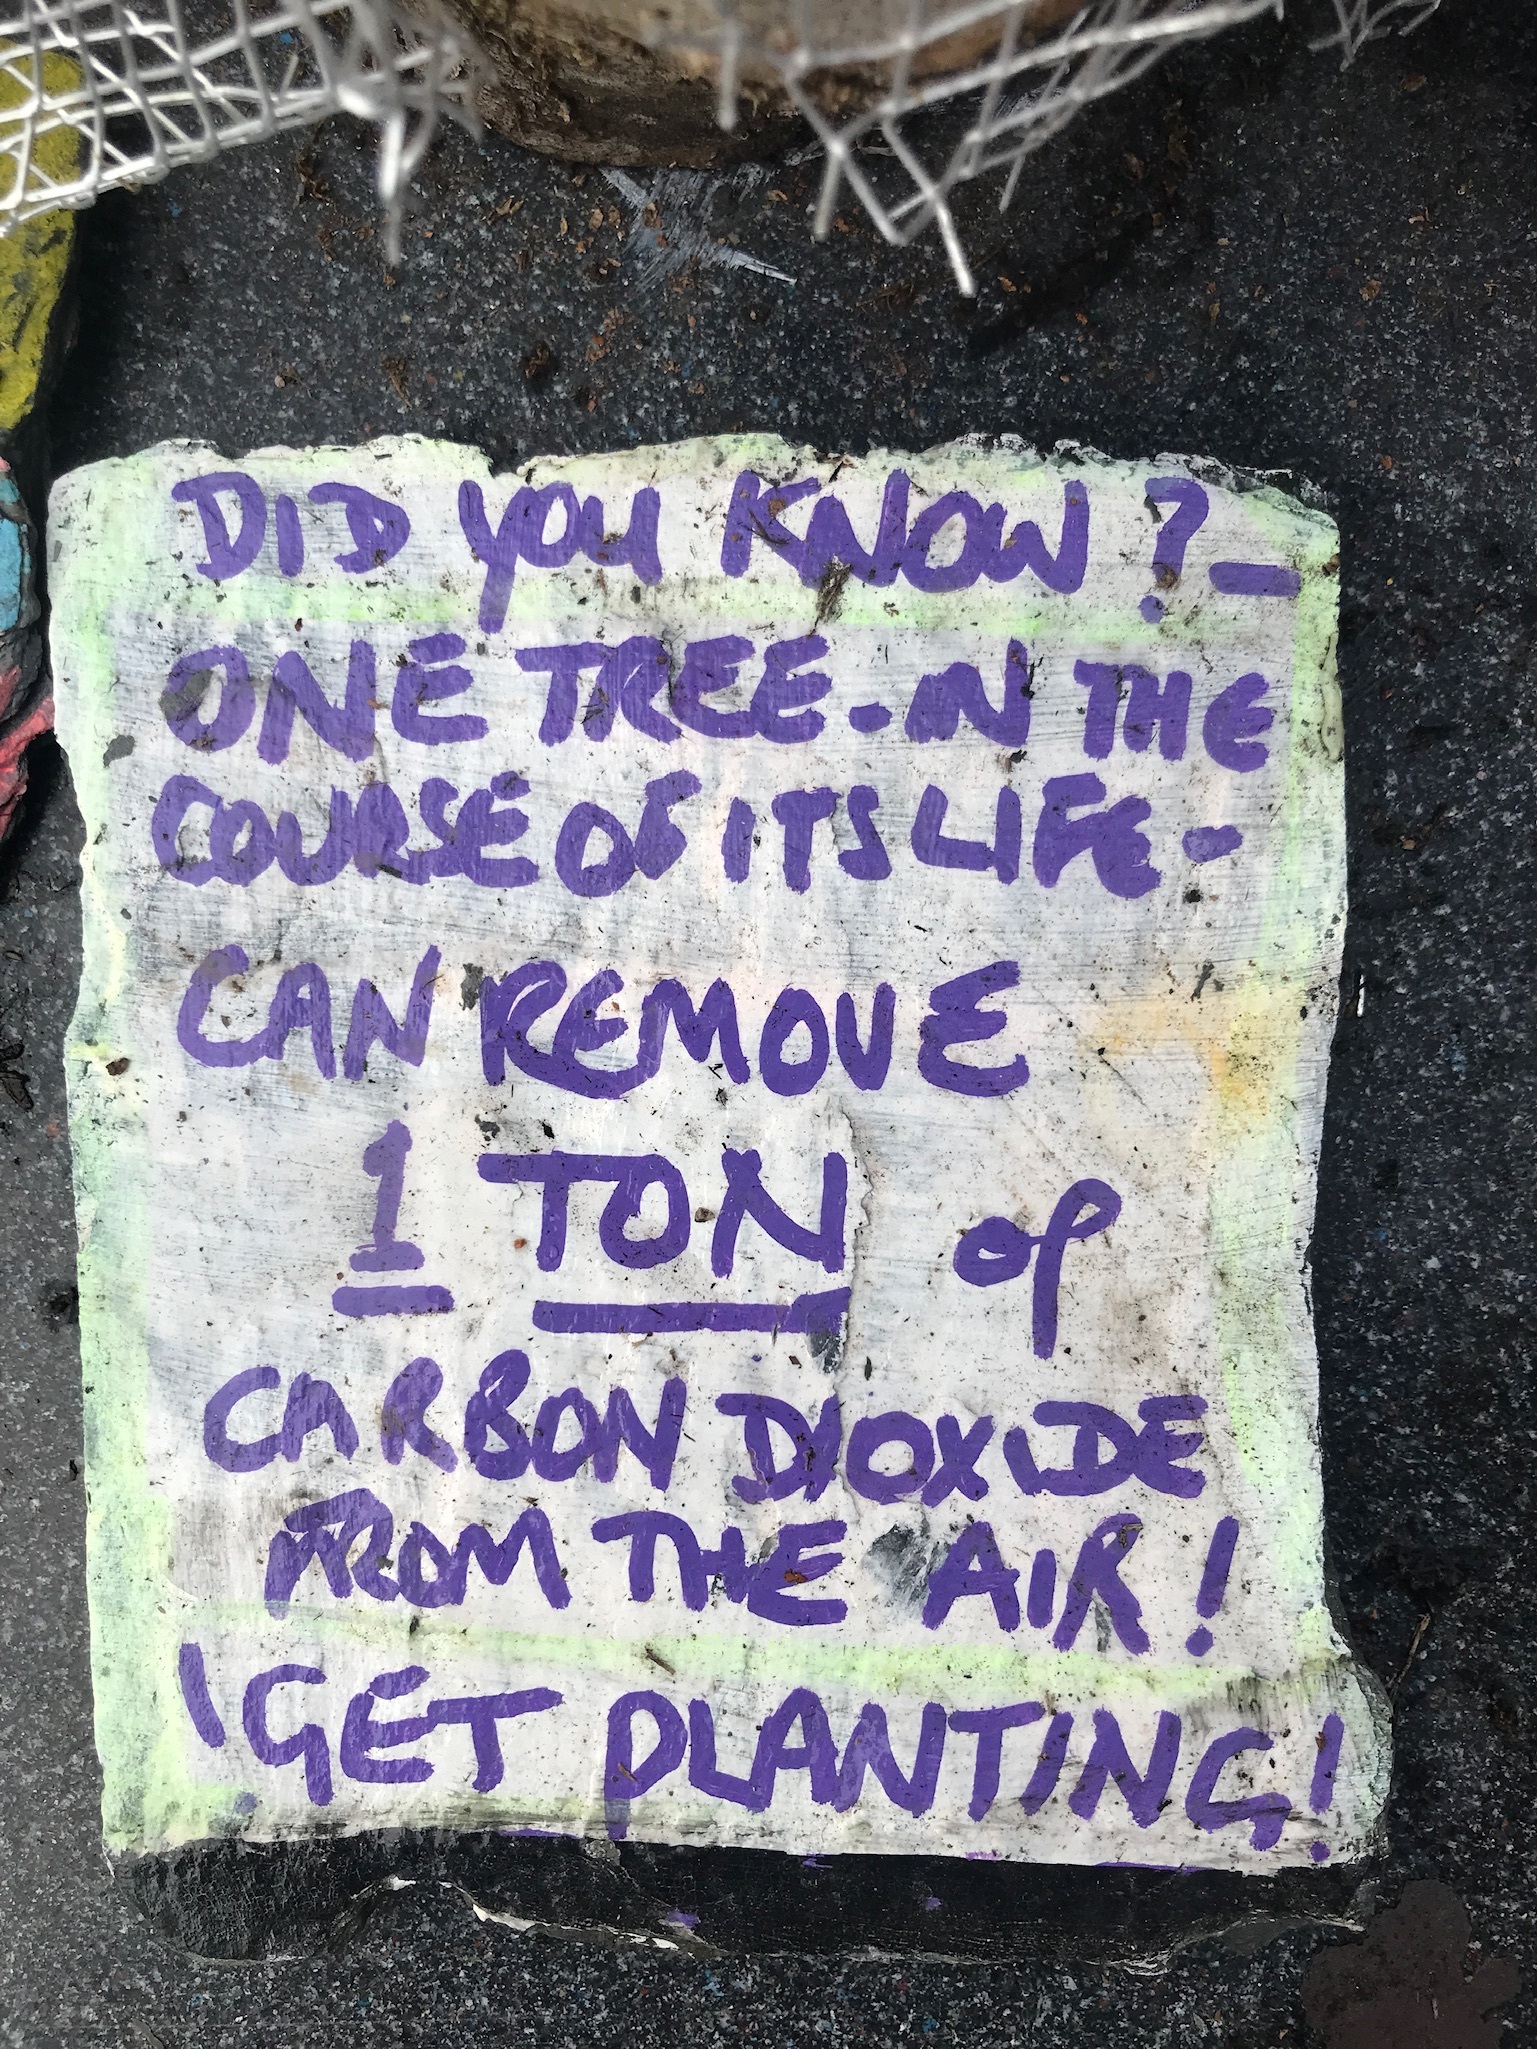 DID YOU KNOW? -
ONE TREE - IN THE
COURSE OF ITS LIFE -
CAN REMOVE
1 TON of
CARBON DIOXIDE
FROM THE AIR!
'GET PLANTING!